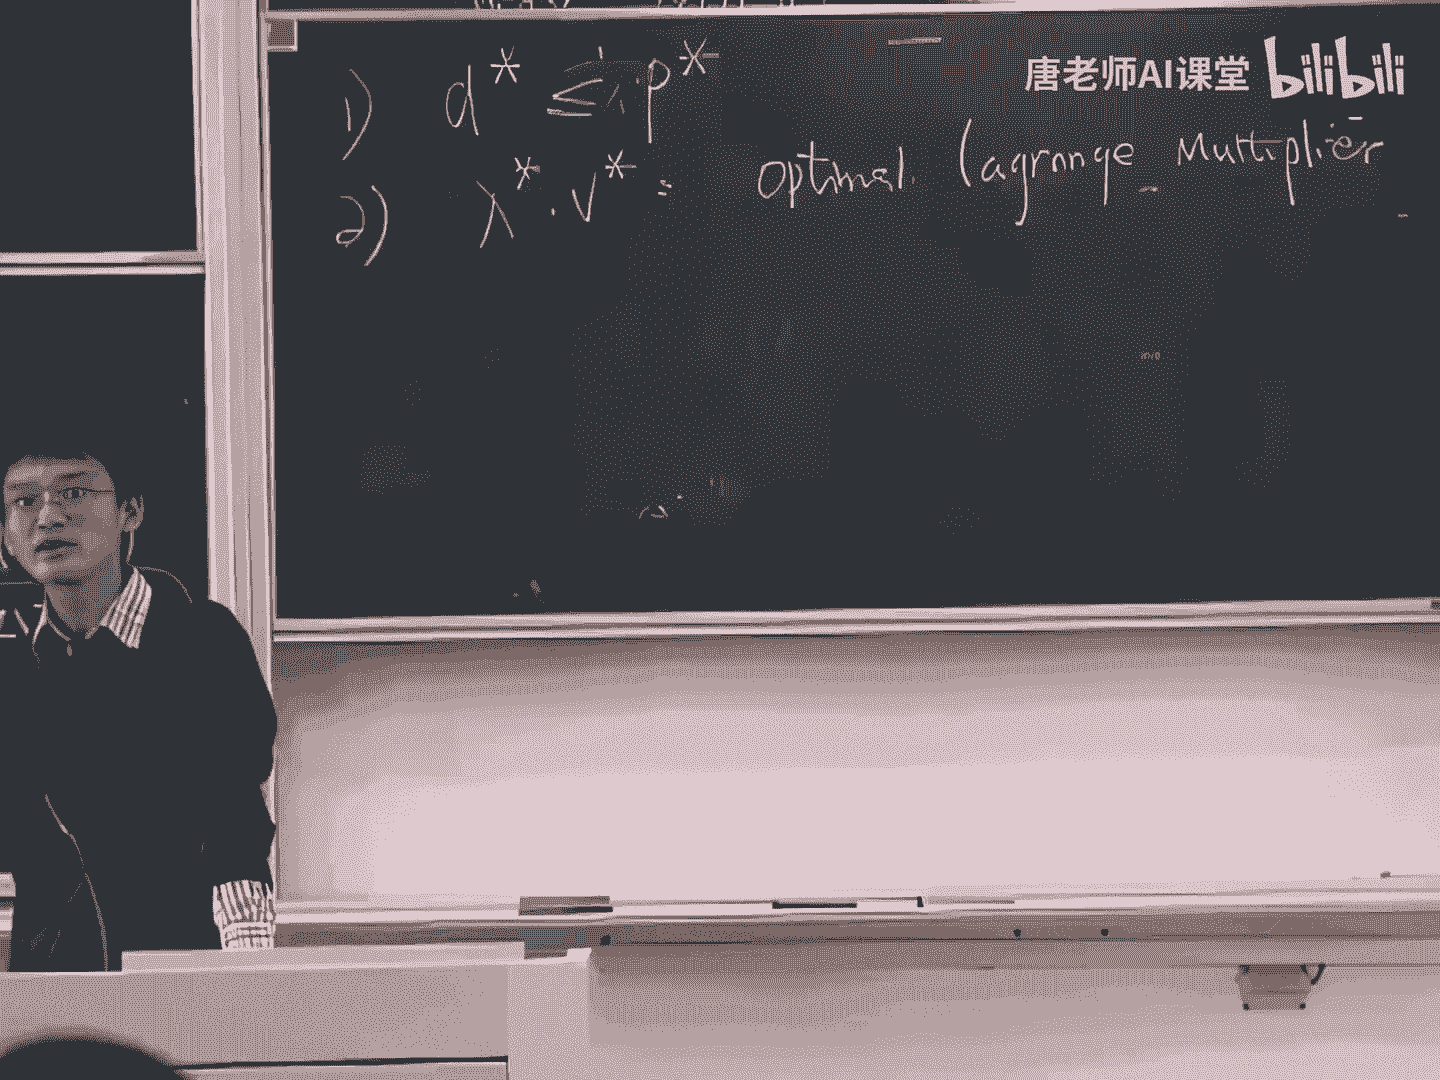 唐老师AI课堂 bilibili
1) d* ≤ p*
2) λ*. v* : optimal. Lagrange Multiplier